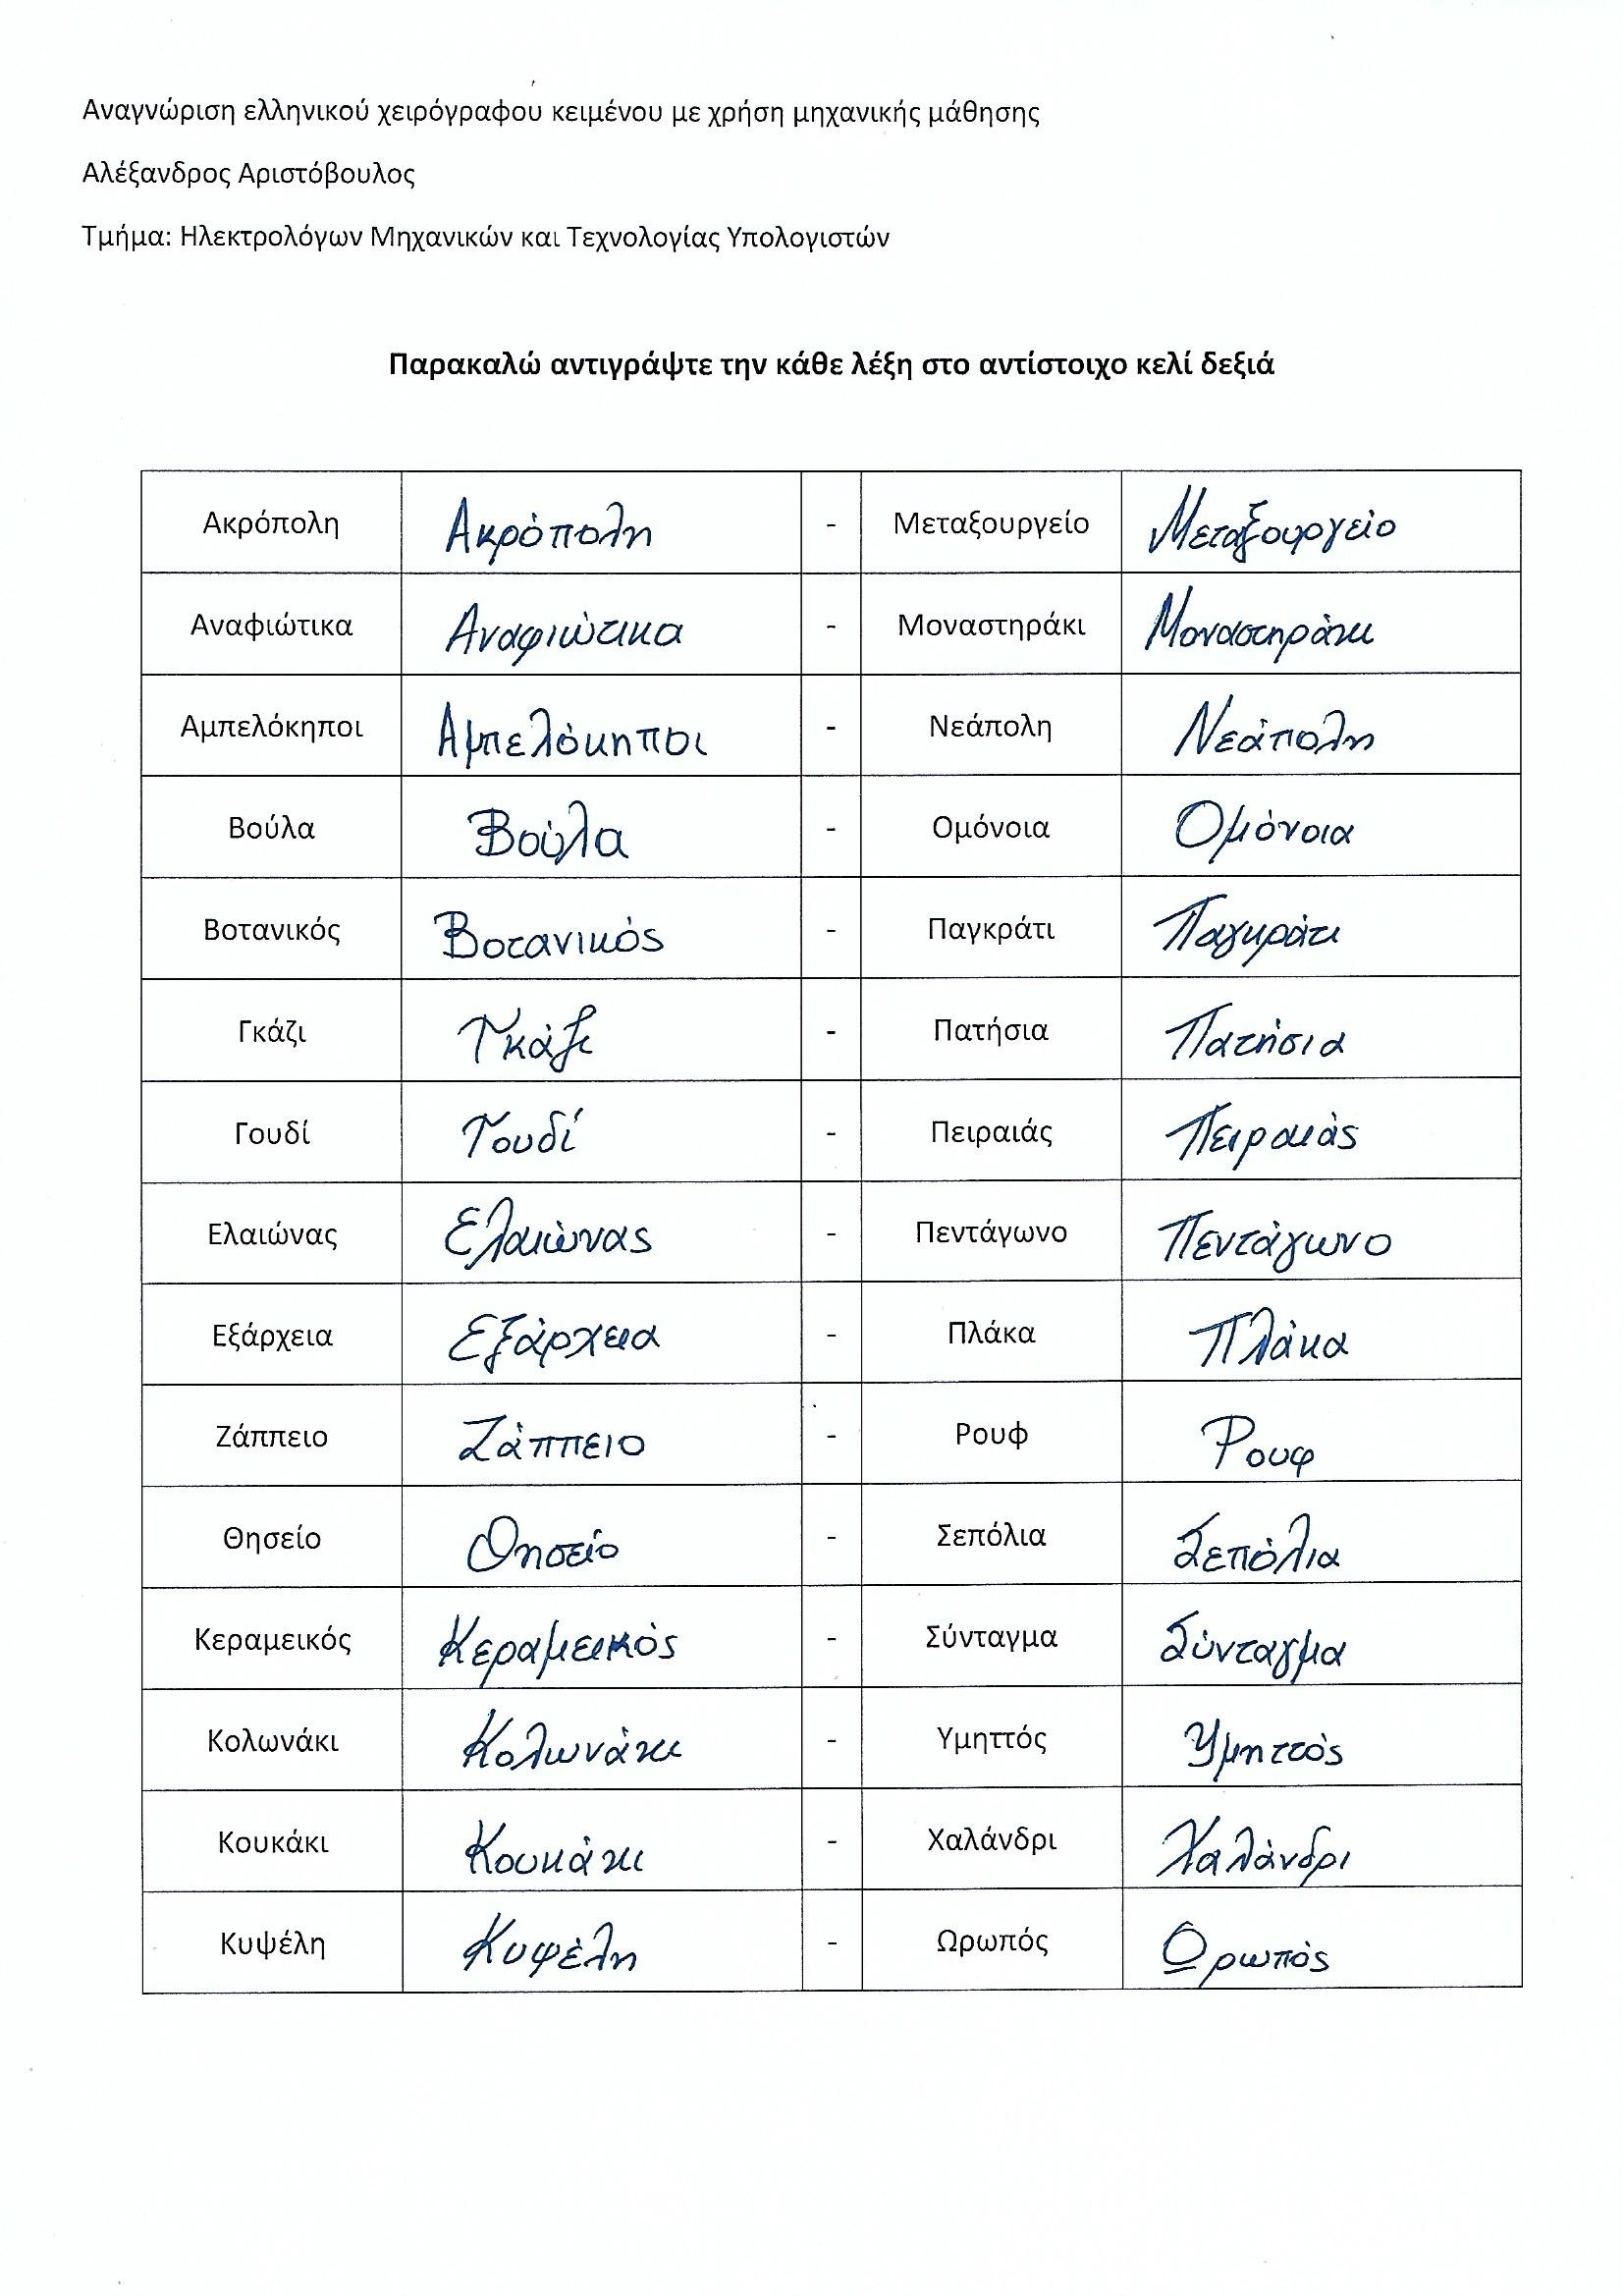 Αναγνώριση ελληνικού χειρόγραφου κειμένου με χρήση μηχανικής μάθησης
Αλέξανδρος Αριστόβουλος
Τμήμα: Ηλεκτρολόγων Μηχανικών και Τεχνολογίας Υπολογιστών
Παρακαλώ αντιγράψτε την κάθε λέξη στο αντίστοιχο κελί δεξιά
Ακρόπολη Ακρόπολη - Μεταξουργείο Μεταξουργείο
Αναφιώτικα Αναφιώτικα - Μοναστηράκι Μοναστηράκι
Αμπελόκηποι Αμπελόκηποι - Νεάπολη Νεάπολη
Βούλα Βούλα - Ομόνοια Ομόνοια
Βοτανικός Βοτανικός - Παγκράτι Παγκράτι
Γκάζι Γκάζι - Πατήσια Πατήσια
Γουδί Γουδί - Πειραιάς Πειραιάς
Ελαιώνας Ελαιώνας - Πεντάγωνο Πεντάγωνο
Εξάρχεια Εξάρχεια - Πλάκα Πλάκα
Ζάππειο Ζάππειο - Ρουφ Ρουφ
Θησείο Θησείο - Σεπόλια Σεπόλια
Κεραμεικός Κεραμεικός - Σύνταγμα Σύνταγμα
Κολωνάκι Κολωνάκι - Υμηττός Υμηττός
Κουκάκι Κουκάκι - Χαλάνδρι Χαλάνδρι
Κυψέλη Κυψέλη - Ωρωπός Ωρωπός